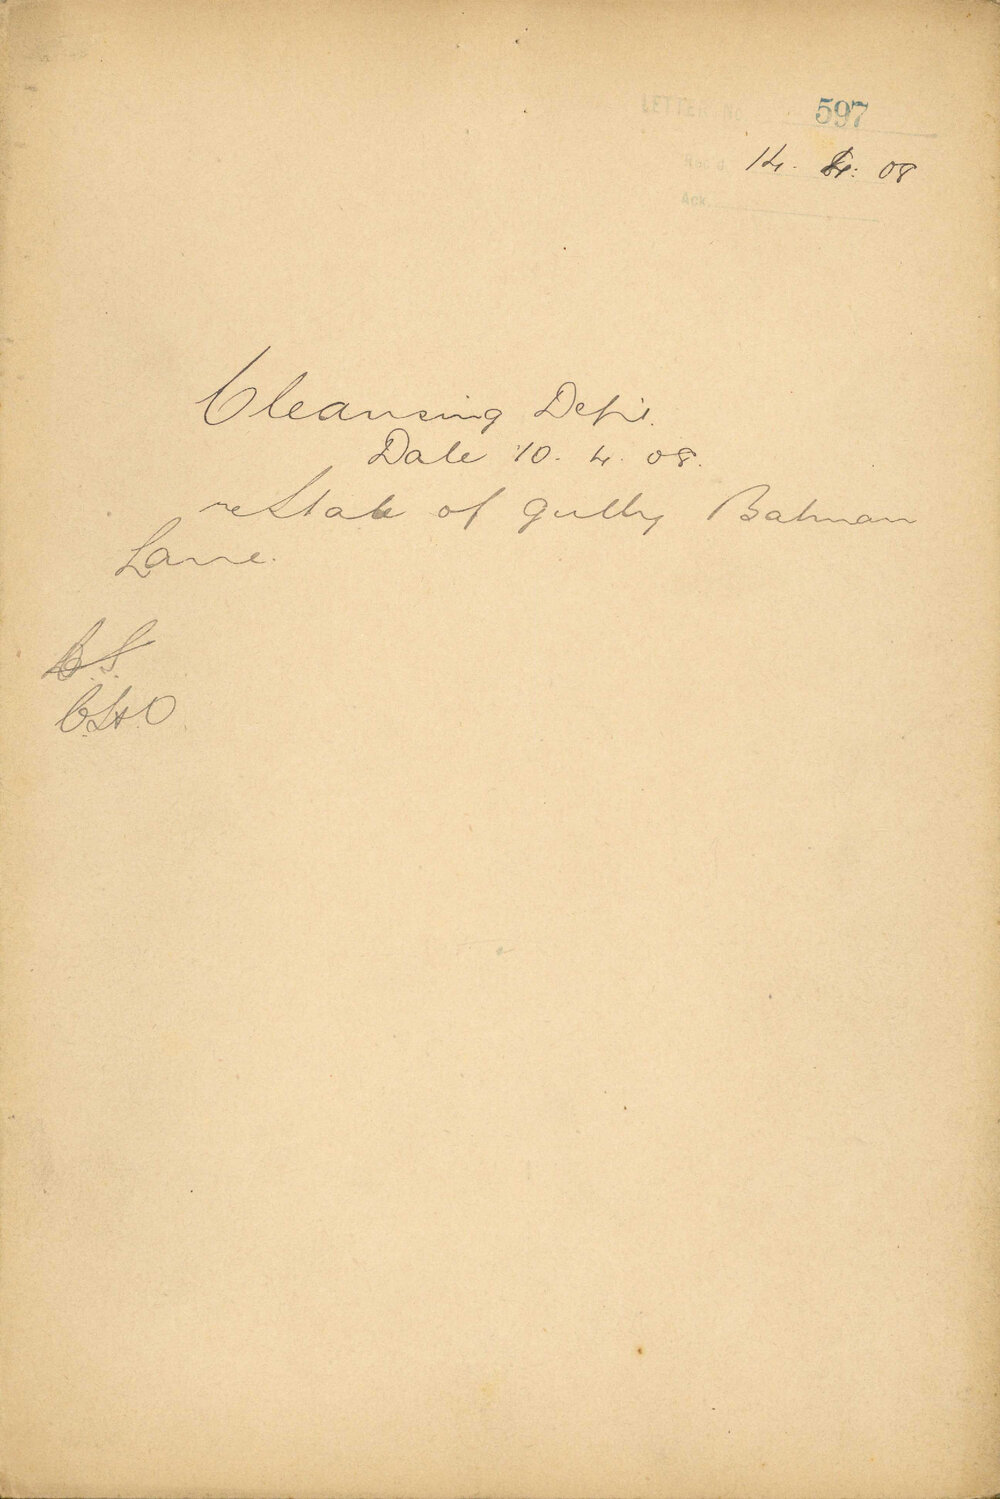 LETTER NO. 597
Rec'd 14. 4. 08
Ack.
Cleansing Dept.
Date 10. 4. 08.
re State of gully Batman
Lane.
B.S.
C.S.O